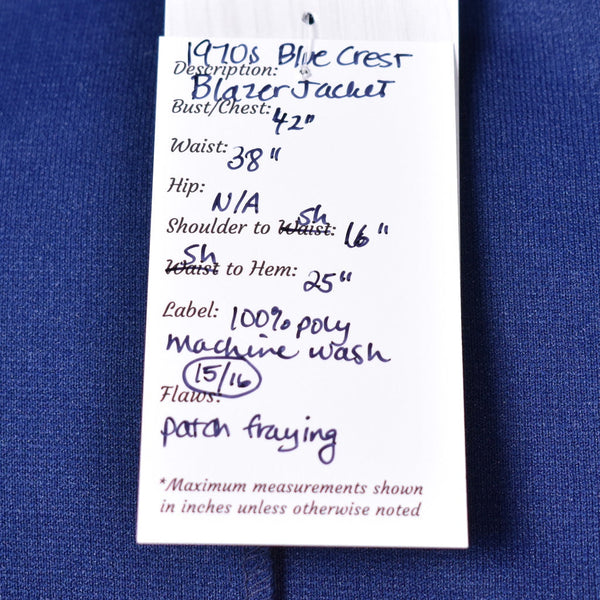 1970s Blue Crest
Description:
Blazer Jacket
Bust/Chest: 42"
Waist: 38"
Hip: N/A
Sh
Shoulder to Waist: 16"
Sh
Waist to Hem: 25"
Label: 100% poly
Machine wash
15/16
Flaws:
patch fraying
*Maximum measurements shown
in inches unless otherwise noted